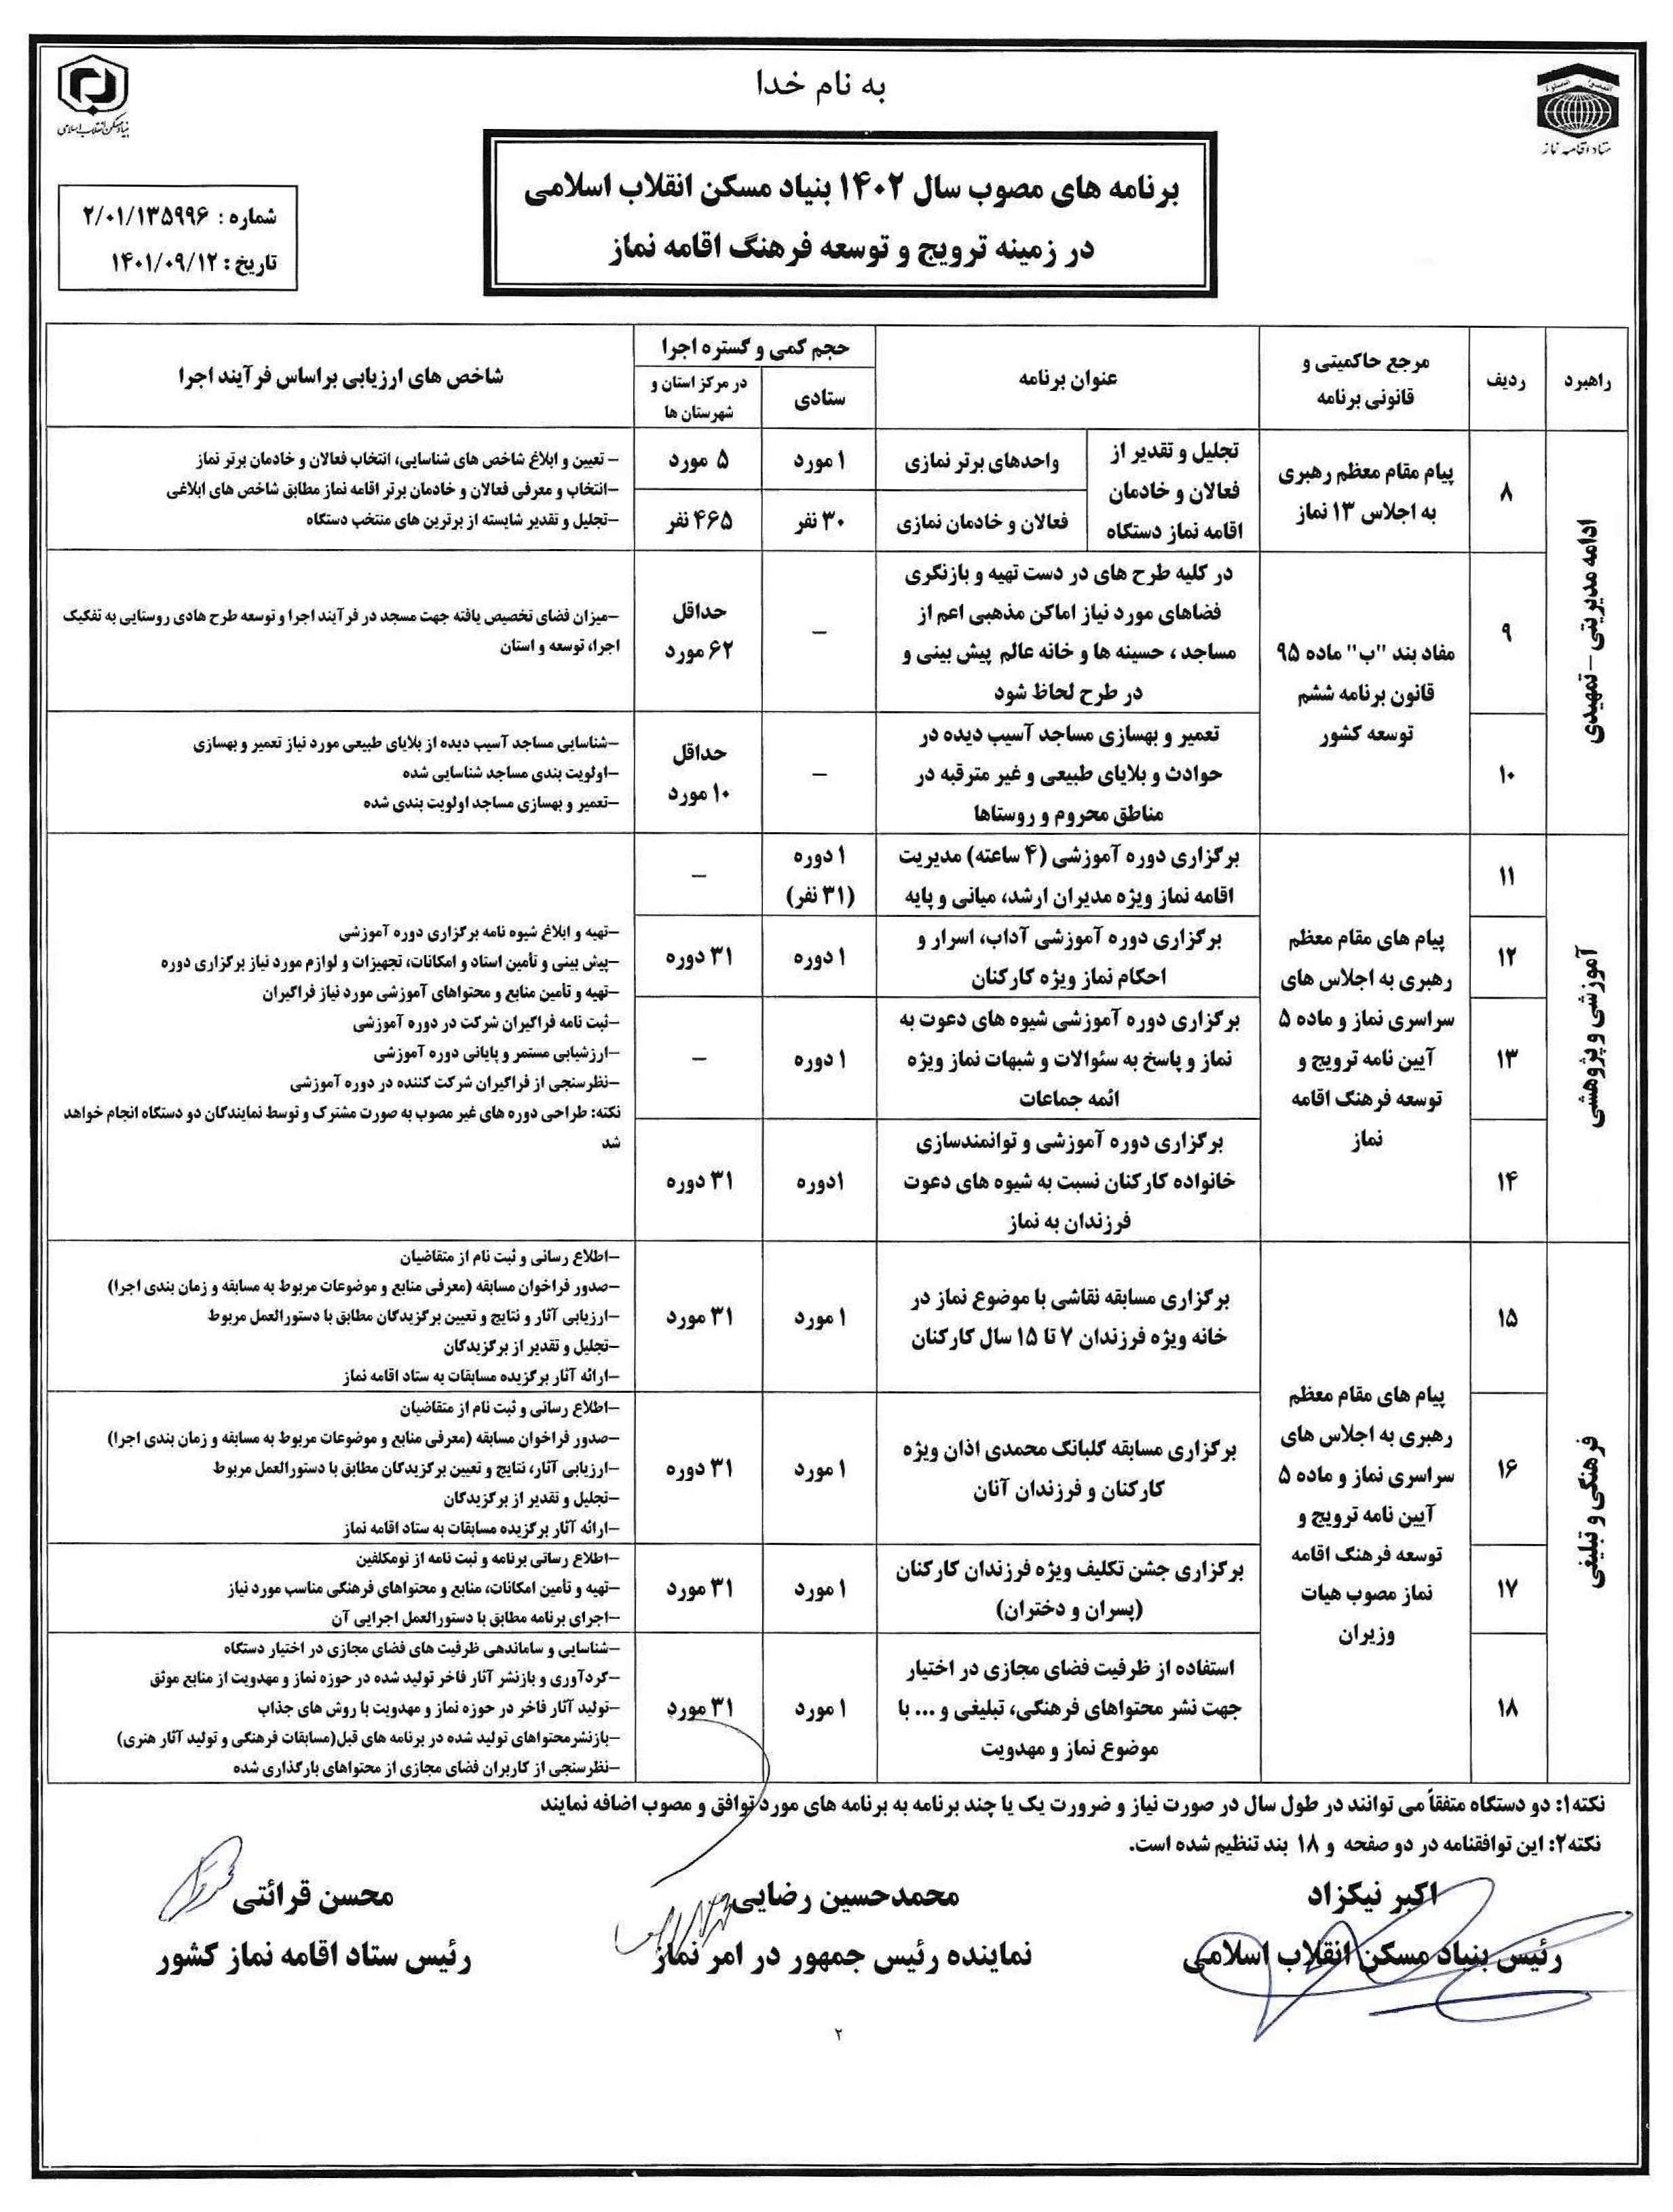 به نام خدا
ستاد اقامه نماز
بنیاد مسکن انقلاب اسلامی
برنامه های مصوب سال ۱۴۰۲ بنیاد مسکن انقلاب اسلامی
در زمینه ترویج و توسعه فرهنگ اقامه نماز
شماره : ۲/۰۱/۱۳۵۹۹۶
تاریخ : ۱۴۰۱/۰۹/۱۲
راهبرد
ردیف
مرجع حاکمیتی و
قانونی برنامه
عنوان برنامه
حجم کمی و گستره اجرا
ستادی
در مرکز استان و
شهرستان ها
شاخص های ارزیابی براساس فرآیند اجرا
ادامه مدیریتی –تمهیدی
۸
پیام مقام معظم رهبری
به اجلاس ۱۳ نماز
تجلیل و تقدیر از
فعالان و خادمان
اقامه نماز دستگاه
واحدهای برتر نمازی
۱ مورد
۵ مورد
فعالان و خادمان نمازی
۳۰ نفر
۴۶۵ نفر
– تعیین و ابلاغ شاخص های شناسایی، انتخاب فعالان و خادمان برتر نماز
–انتخاب و معرفی فعالان و خادمان برتر اقامه نماز مطابق شاخص های ابلاغی
–تجلیل و تقدیر شایسته از برترین های منتخب دستگاه
۹
مفاد بند "ب" ماده ۹۵
قانون برنامه ششم
توسعه کشور
در کلیه طرح های در دست تهیه و بازنگری
فضاهای مورد نیاز اماکن مذهبی اعم از
مساجد ، حسینه ها و خانه عالم پیش بینی و
در طرح لحاظ شود
–
حداقل
۶۲ مورد
–میزان فضای تخصیص یافته جهت مسجد در فرآیند اجرا و توسعه طرح هادی روستایی به تفکیک
اجرا، توسعه و استان
۱۰
تعمیر و بهسازی مساجد آسیب دیده در
حوادث و بلایای طبیعی و غیر مترقبه در
مناطق محروم و روستاها
–
حداقل
۱۰ مورد
–شناسایی مساجد آسیب دیده از بلایای طبیعی مورد نیاز تعمیر و بهسازی
–اولویت بندی مساجد شناسایی شده
–تعمیر و بهسازی مساجد اولویت بندی شده
آموزشی و پژوهشی
۱۱
پیام های مقام معظم
رهبری به اجلاس های
سراسری نماز و ماده ۵
آیین نامه ترویج و
توسعه فرهنگ اقامه
نماز
برگزاری دوره آموزشی (۴ ساعته) مدیریت
اقامه نماز ویژه مدیران ارشد، میانی و پایه
۱ دوره
(۳۱ نفر)
–
۱۲
برگزاری دوره آموزشی آداب، اسرار و
احکام نماز ویژه کارکنان
۱ دوره
۳۱ دوره
۱۳
برگزاری دوره آموزشی شیوه های دعوت به
نماز و پاسخ به سئوالات و شبهات نماز ویژه
ائمه جماعات
۱ دوره
–
۱۴
برگزاری دوره آموزشی و توانمندسازی
خانواده کارکنان نسبت به شیوه های دعوت
فرزندان به نماز
۱دوره
۳۱ دوره
–تهیه و ابلاغ شیوه نامه برگزاری دوره آموزشی
–پیش بینی و تأمین استاد و امکانات، تجهیزات و لوازم مورد نیاز برگزاری دوره
–تهیه و تأمین منابع و محتواهای آموزشی مورد نیاز فراگیران
–ثبت نامه فراگیران شرکت در دوره آموزشی
–ارزشیابی مستمر و پایانی دوره آموزشی
–نظرسنجی از فراگیران شرکت کننده در دوره آموزشی
نکته: طراحی دوره های غیر مصوب به صورت مشترک و توسط نمایندگان دو دستگاه انجام خواهد
شد
فرهنگی و تبلیغی
۱۵
پیام های مقام معظم
رهبری به اجلاس های
سراسری نماز و ماده ۵
آیین نامه ترویج و
توسعه فرهنگ اقامه
نماز مصوب هیات
وزیران
برگزاری مسابقه نقاشی با موضوع نماز در
خانه ویژه فرزندان ۷ تا ۱۵ سال کارکنان
۱ مورد
۳۱ مورد
–اطلاع رسانی و ثبت نام از متقاضیان
–صدور فراخوان مسابقه (معرفی منابع و موضوعات مربوط به مسابقه و زمان بندی اجرا)
–ارزیابی آثار و نتایج و تعیین برگزیدگان مطابق با دستورالعمل مربوط
–تجلیل و تقدیر از برگزیدگان
–ارائه آثار برگزیده مسابقات به ستاد اقامه نماز
۱۶
برگزاری مسابقه گلبانگ محمدی اذان ویژه
کارکنان و فرزندان آنان
۱ مورد
۳۱ دوره
–اطلاع رسانی و ثبت نام از متقاضیان
–صدور فراخوان مسابقه (معرفی منابع و موضوعات مربوط به مسابقه و زمان بندی اجرا)
–ارزیابی آثار، نتایج و تعیین برگزیدگان مطابق با دستورالعمل مربوط
–تجلیل و تقدیر از برگزیدگان
–ارائه آثار برگزیده مسابقات به ستاد اقامه نماز
۱۷
برگزاری جشن تکلیف ویژه فرزندان کارکنان
(پسران و دختران)
۱ مورد
۳۱ مورد
–اطلاع رسانی برنامه و ثبت نامه از نومکلفین
–تهیه و تأمین امکانات، منابع و محتواهای فرهنگی مناسب مورد نیاز
–اجرای برنامه مطابق با دستورالعمل اجرایی آن
۱۸
استفاده از ظرفیت فضای مجازی در اختیار
جهت نشر محتواهای فرهنگی، تبلیغی و ... با
موضوع نماز و مهدویت
۱ مورد
۳۱ مورد
–شناسایی و ساماندهی ظرفیت های فضای مجازی در اختیار دستگاه
–گردآوری و بازنشر آثار فاخر تولید شده در حوزه نماز و مهدویت از منابع موثق
–تولید آثار فاخر در حوزه نماز و مهدویت با روش های جذاب
–بازنشرمحتواهای تولید شده در برنامه های قبل(مسابقات فرهنگی و تولید آثار هنری)
–نظرسنجی از کاربران فضای مجازی از محتواهای بارگذاری شده
نکته۱: دو دستگاه متفقاً می توانند در طول سال در صورت نیاز و ضرورت یک یا چند برنامه به برنامه های مورد توافق و مصوب اضافه نمایند
نکته۲: این توافقنامه در دو صفحه و ۱۸ بند تنظیم شده است.
اکبر نیکزاد
رئیس بنیاد مسکن انقلاب اسلامی
محمدحسین رضایی
نماینده رئیس جمهور در امر نماز
محسن قرائتی
رئیس ستاد اقامه نماز کشور
۲